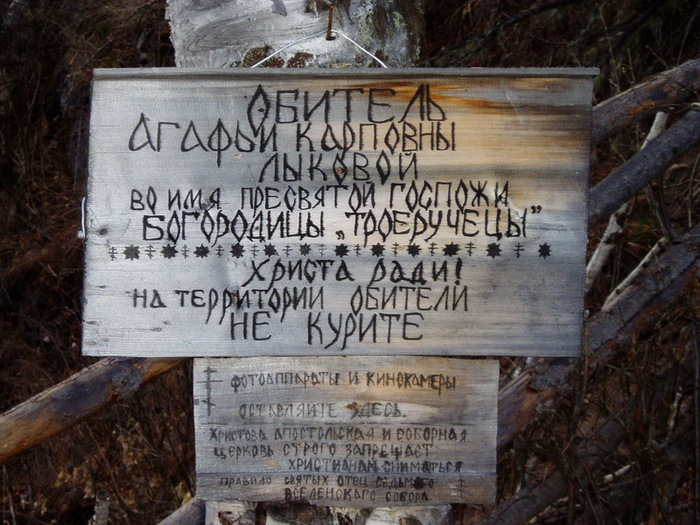 ОБИТЕЛЬ
АГАФЬИ КАРПОВНЫ
ЛЫКОВОЙ
ВО ИМЯ ПРЕСВЯТОЙ ГОСПОЖИ
БОГОРОДИЦЫ „ТРОЕРУЧЕЦЫ"
ХРИСТА РАДИ!
НА ТЕРРИТОРИИ ОБИТЕЛИ
НЕ КУРИТЕ
ФОТОАППАРАТЫ И КИНОКАМЕРЫ
ОСТАВЛЯЙТЕ ЗДЕСЬ.
ХРИСТОВА АПОСТОЛЬСКАЯ И СОБОРНАЯ
ЦЕРКОВЬ СТРОГО ЗАПРЕЩАЕТ
ХРИСТИАНАМ СНИМАТЬСЯ
ПРАВИЛО СВЯТЫХ ОТЕЦ СЕДЬМАГО
ВСЕЛЕНСКОГО СОБОРА